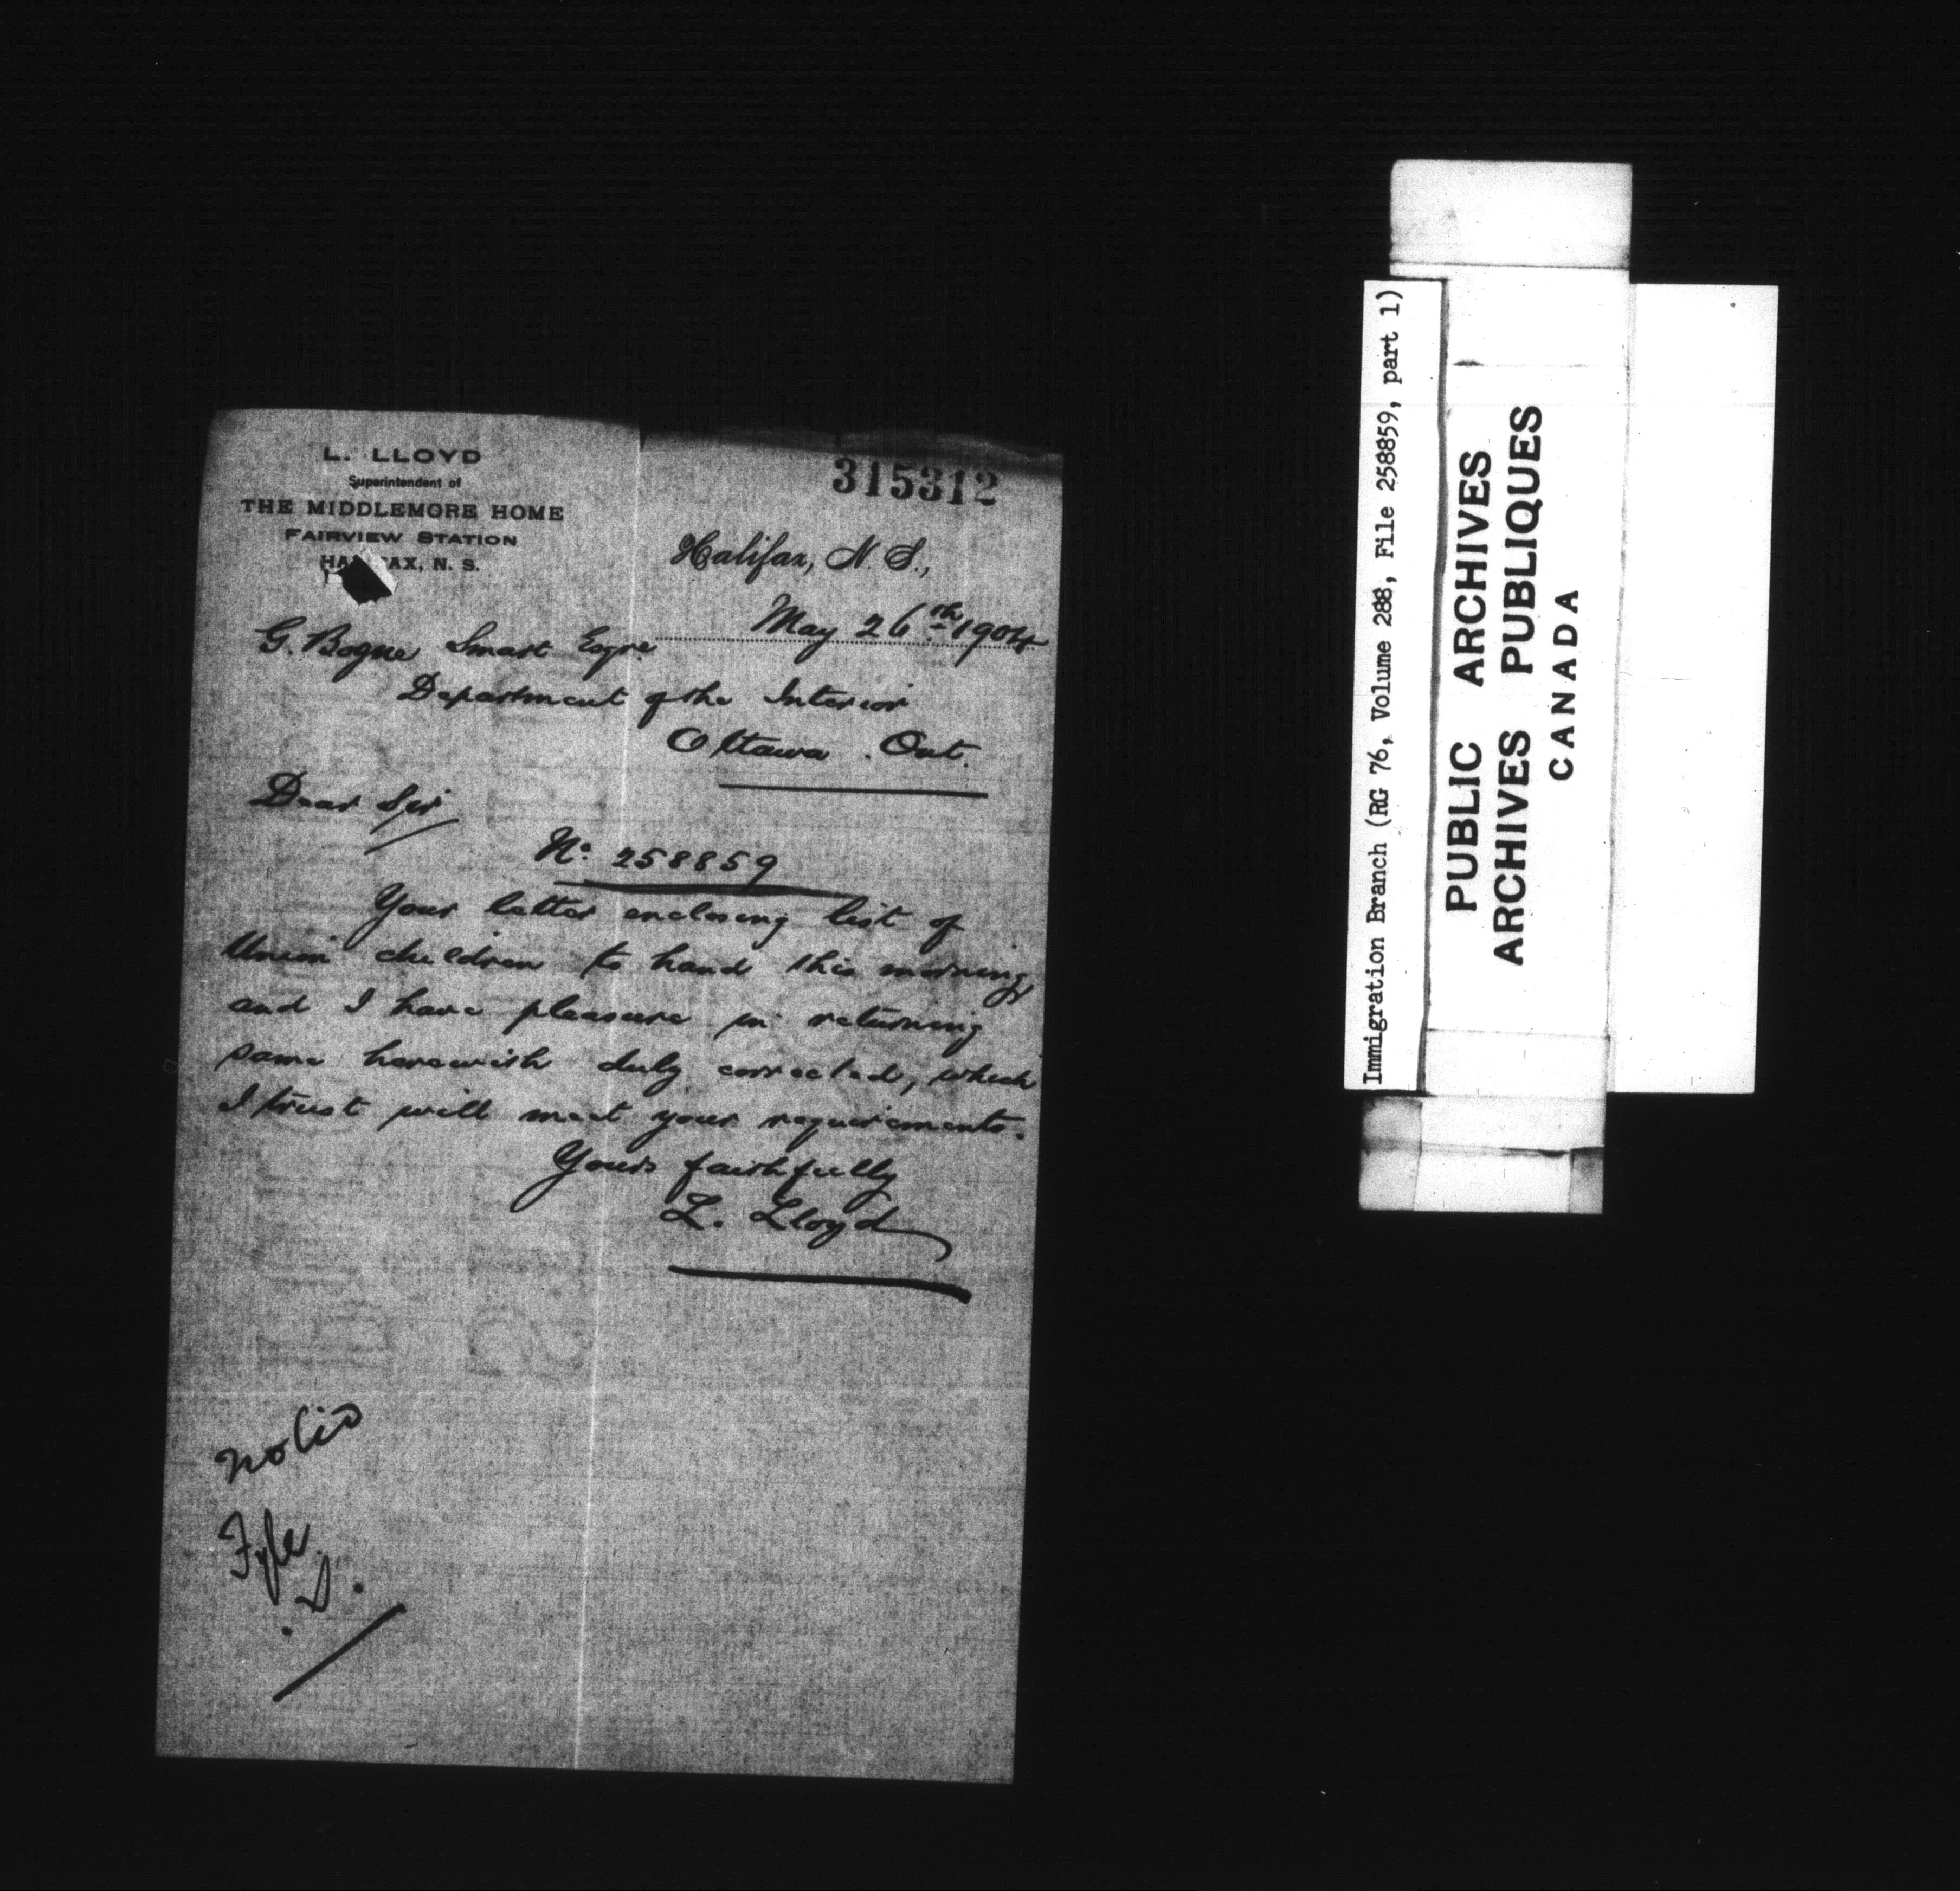 L. LLOYD
Superintendent of
THE MIDDLEMORE HOME
FAIRVIEW STATION
HALIFAX, N. S.
315312
Halifax, N. S.,
May 26th 1904
G. Bogue Smart Esqre
Department of the Interior
Ottawa. Ont.
Dear Sir
No. 258859
Your letter enclosing list of
Union children to hand this morning
and I have pleasure in returning
same herewith duly corrected, which
I trust will meet your requirements.
Yours faithfully
L. Lloyd
Fyle
Immigration Branch (RG 76, Volume 288, File 258859, part 1)
PUBLIC ARCHIVES
ARCHIVES PUBLIQUES
CANADA